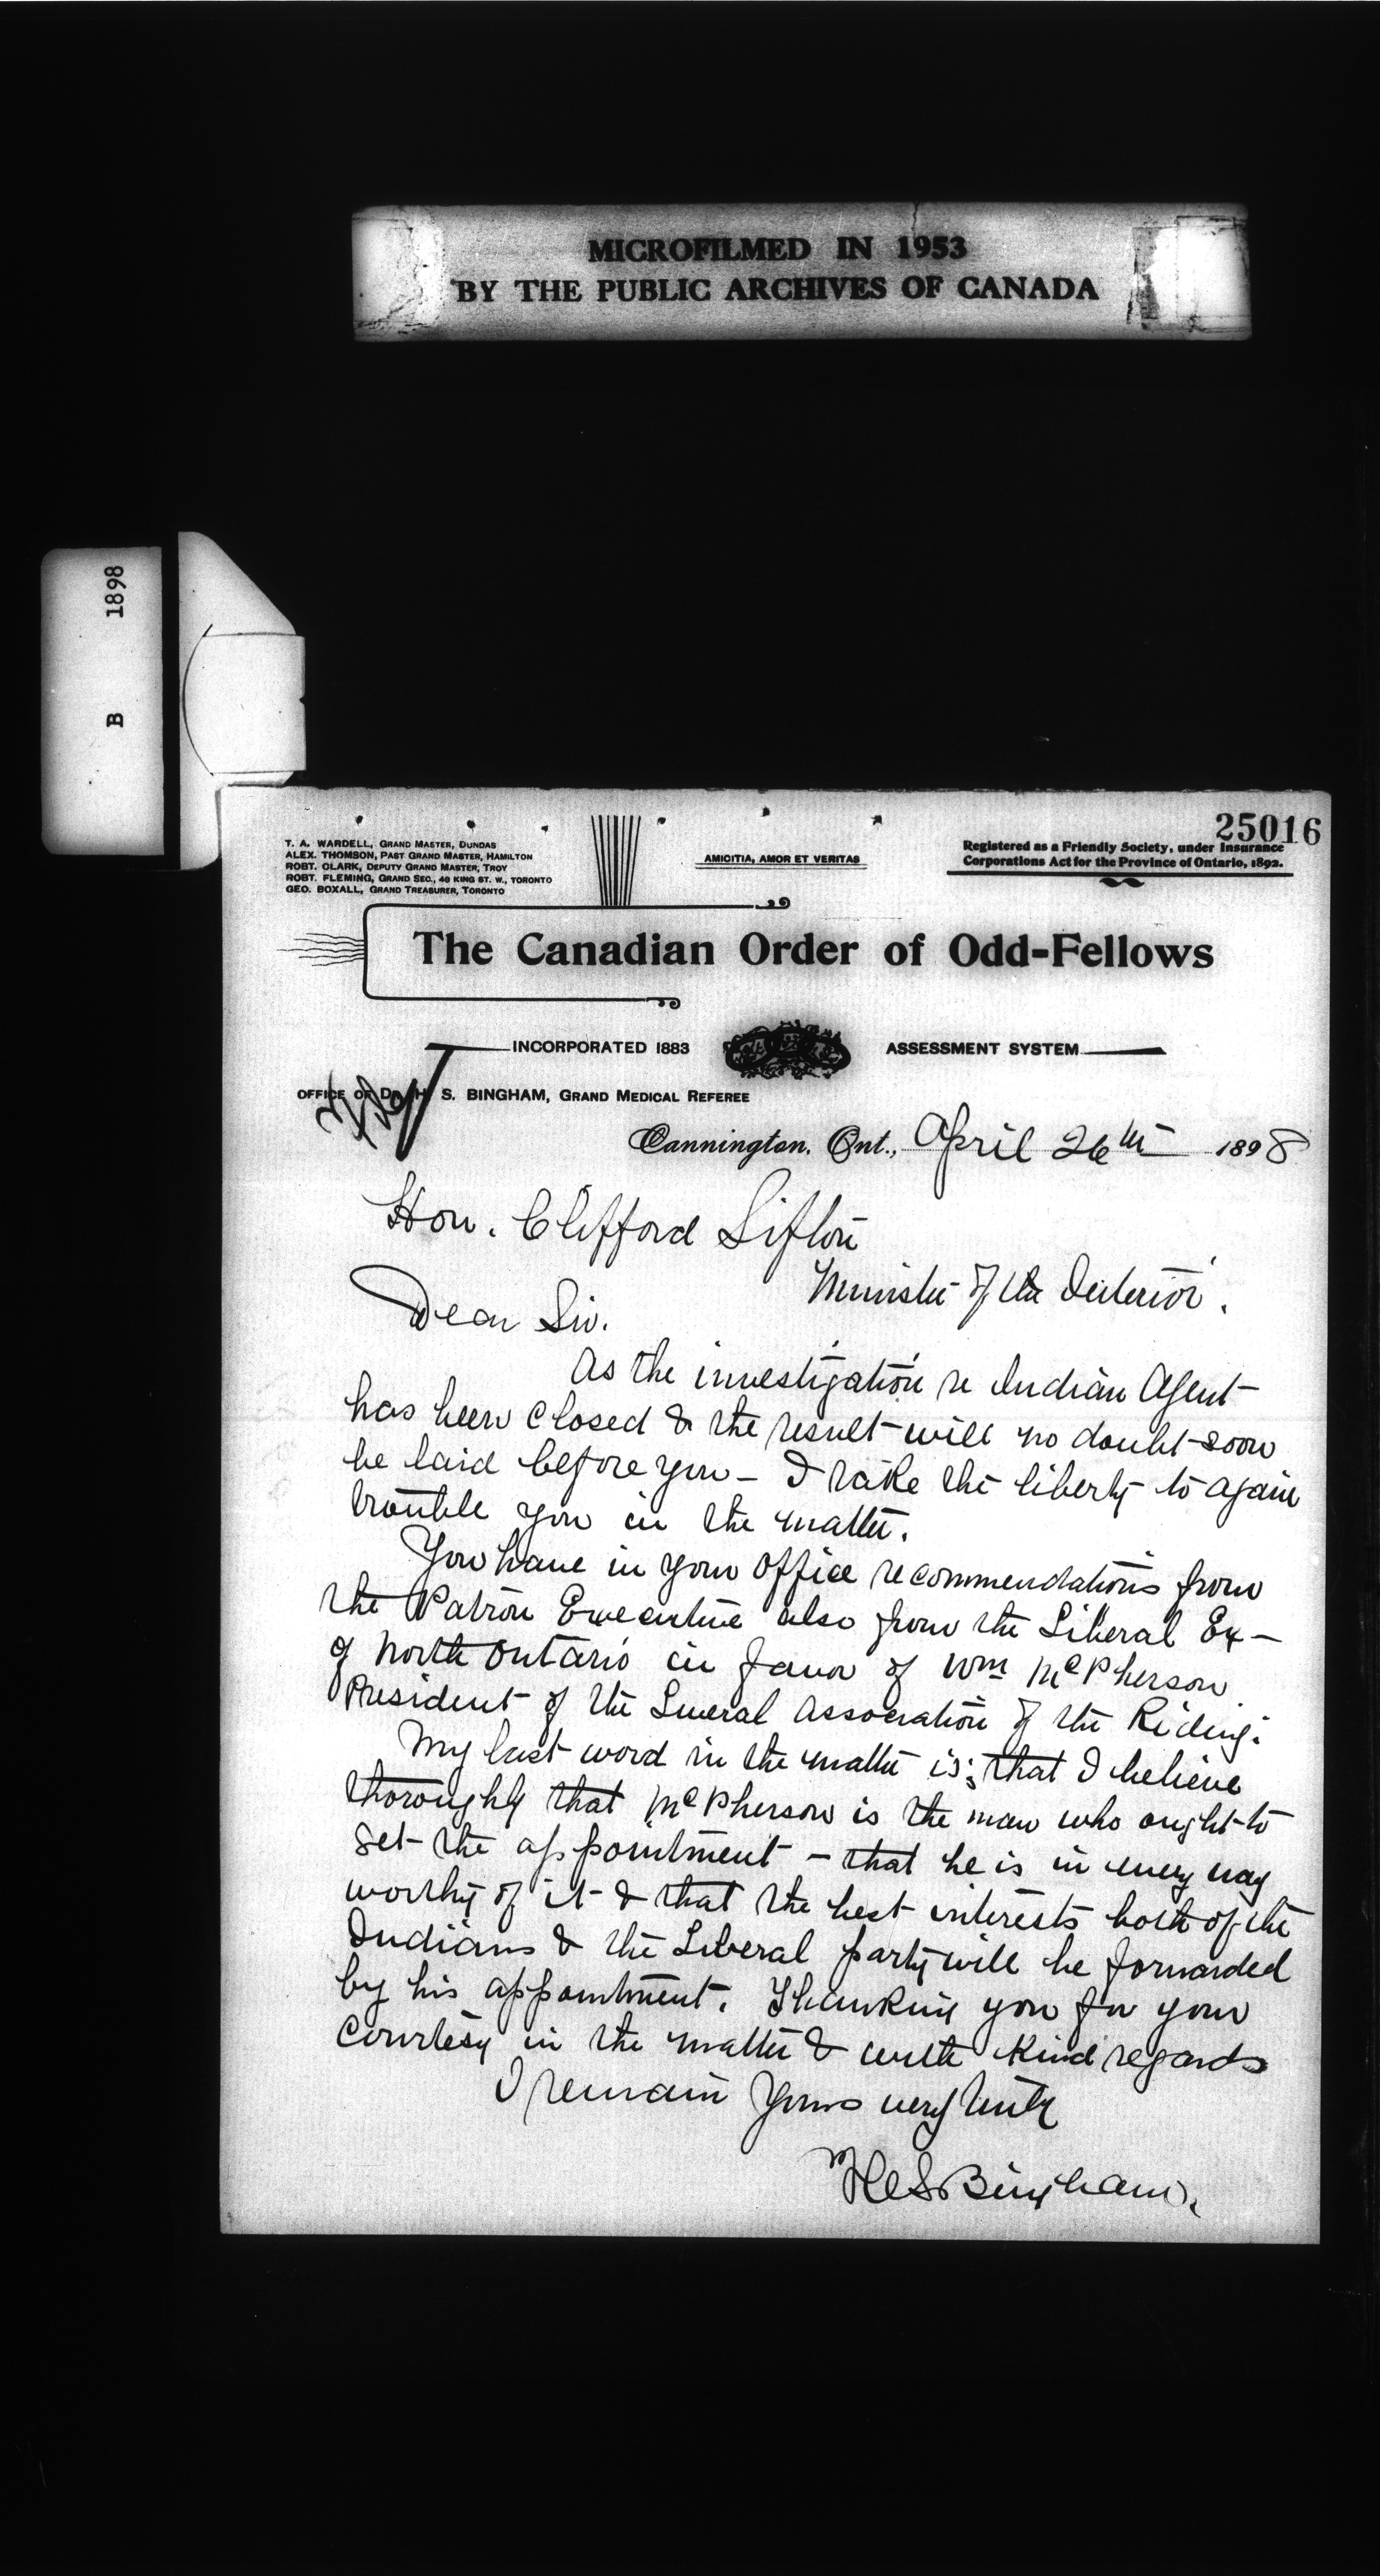 MICROFILMED IN 1953
BY THE PUBLIC ARCHIVES OF CANADA
B 1898
25016
T. A. WARDELL, GRAND MASTER, DUNDAS
ALEX. THOMSON, PAST GRAND MASTER, HAMILTON
ROBT. CLARK, DEPUTY GRAND MASTER, TROY
ROBT. FLEMING, GRAND SEC., 49 KING ST. W., TORONTO
GEO. BOXALL, GRAND TREASURER, TORONTO
AMICITIA, AMOR ET VERITAS
Registered as a Friendly Society, under Insurance
Corporations Act for the Province of Ontario, 1892.
The Canadian Order of Odd-Fellows
INCORPORATED 1883
ASSESSMENT SYSTEM
OFFICE OF DR. H. S. BINGHAM, GRAND MEDICAL REFEREE
Cannington, Ont., April 26th 1898
Hon. Clifford Sifton
Minister of the Interior.
Dear Sir.
As the investigation re Indian Agent
has been closed & the result will no doubt soon
be laid before you – I take the liberty to again
trouble you in the matter.
You have in your office recommendations from
the Patron Executive also from the Liberal Ex–
of North Ontario in favor of Wm McPherson
President of the Liberal Association of the Riding.
My last word in the matter is; that I believe
thoroughly that McPherson is the man who ought to
get the appointment – that he is in every way
worthy of it & that the best interests both of the
Indians & the Liberal party will be forwarded
by his appointment. Thanking you for your
courtesy in the matter & with kind regards
I remain Yours very truly
H S Bingham.